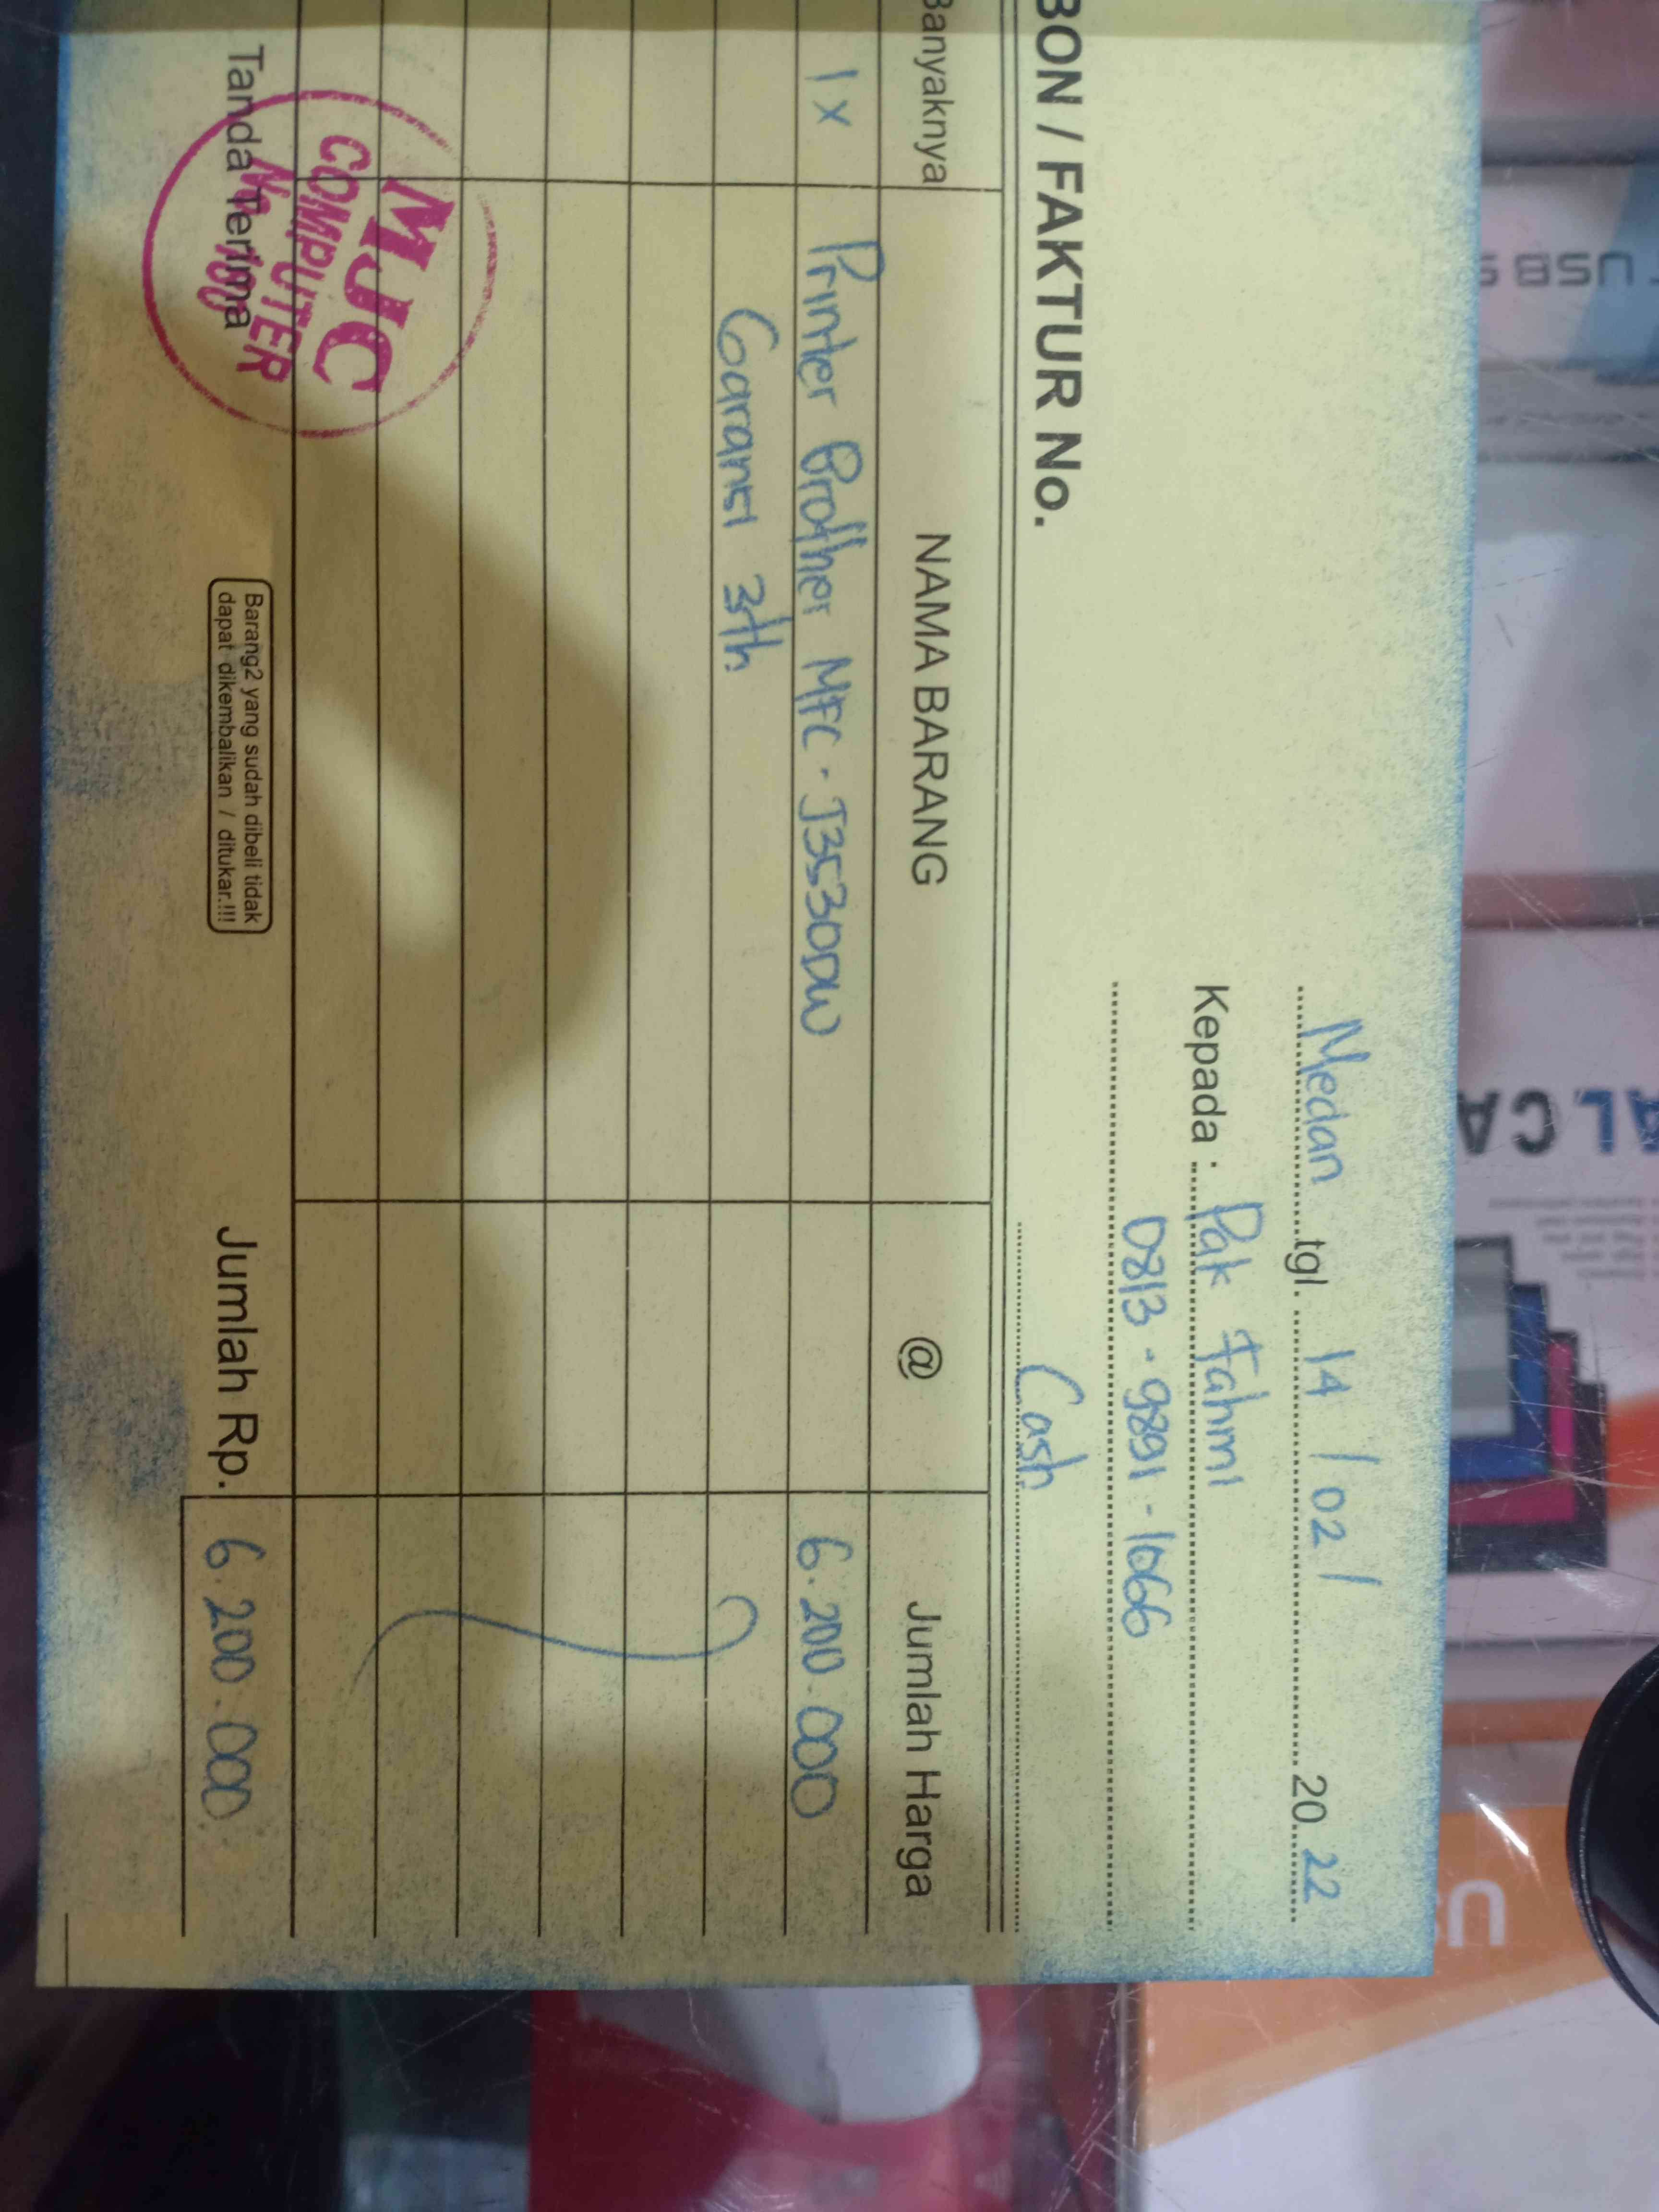 Medan tgl. 14 / 02 / 20 22
Kepada : Pak Fahmi
0813 - 9891 - 1066
BON / FAKTUR No.
Cash
Banyaknya NAMA BARANG @ Jumlah Harga
1 x Printer Brother MFC - J3530DW 6.200.000
Garansi 3th
Tanda Terima
MJC
COMPUTER
Barang2 yang sudah dibeli tidak
dapat dikembalikan / ditukar.!!!
Jumlah Rp. 6.200.000
USB
AL CA